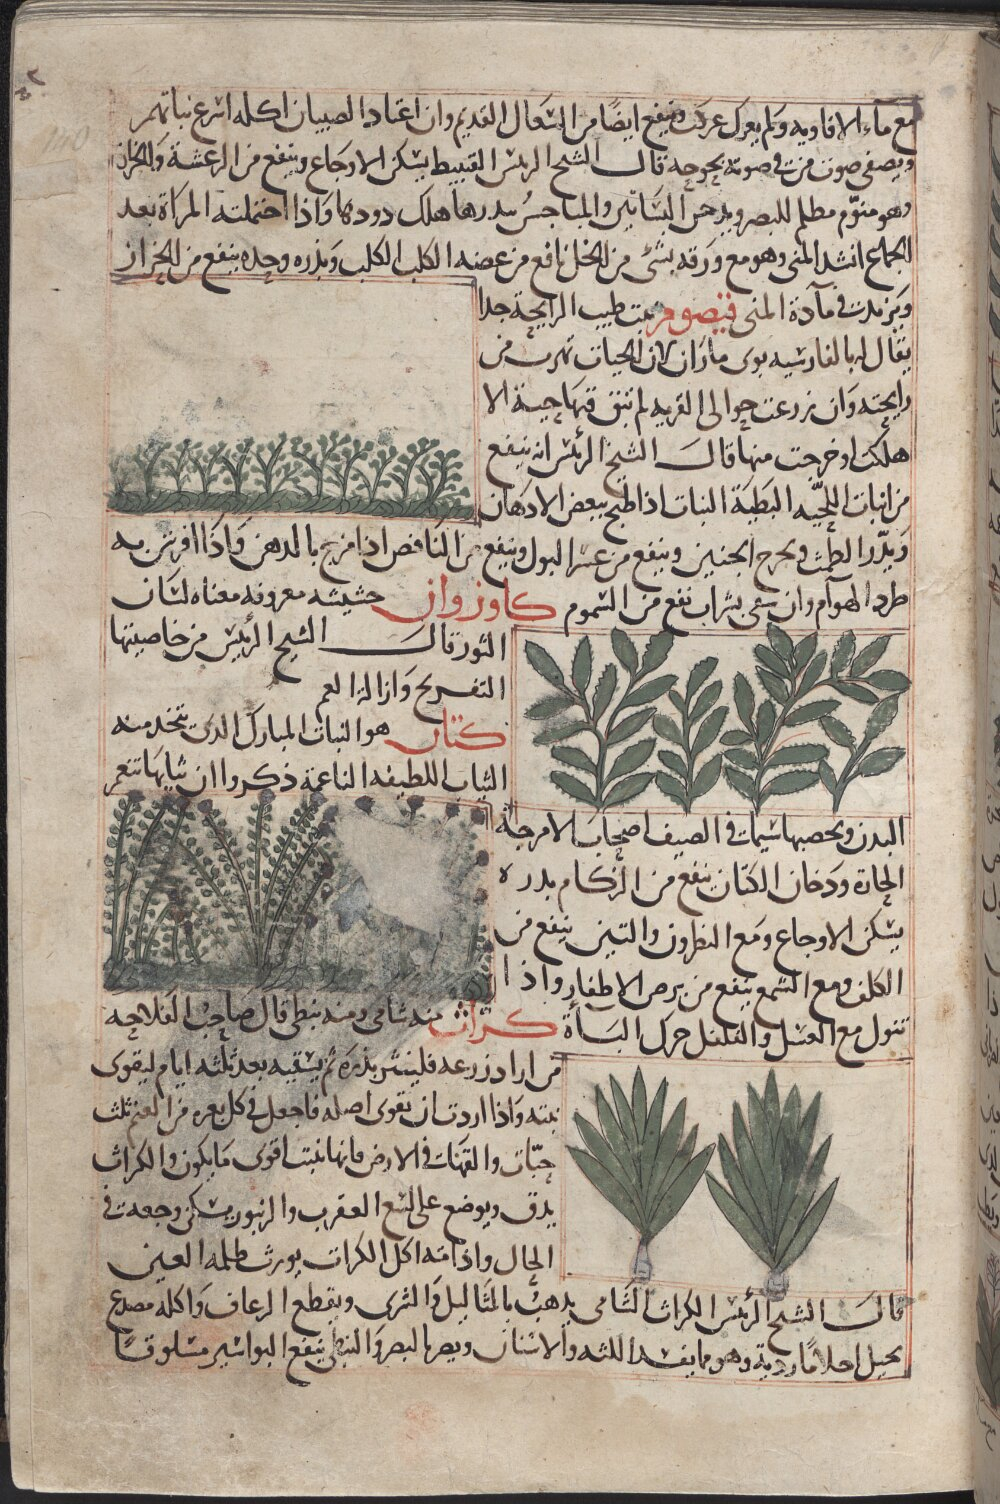 مع ماء الافاويه ولم يعرك عركت وينفع ايضا من السعال القديم وان اعتاد الصبيان اكله اسرع نباتهم
ويصفى صوت من في صوته بحوحة قال الشيخ الرئيس القنبيط يسكن الاوجاع وينفع من الرعشة والحزاز
وهو منوم مظلم للبصر ويدخن البساتين والمباحس ببدرها هلك دودها واذا احتملته المراة بعد
الجماع افسد المنى وهو مع ورقه بشئ من الخل نافع من عضه الكلب الكلب وبذره وحده ينفع من الخزاز
ويزيدت في مادة المنى قيصوم نبت طيب الرايحة جدا
يقال له بالفارسيه بوى ماذران لان الحيات تهرب من
رايحته وان زرعت حوالى القريه لم تبق فيها حية الا
هلكت او خرجت منها قال الشيخ الرئيس انه ينفع
من انبات اللحيه البطية النبات اذا طبخ ببعض الادهان
ويدر الطمث ويخرج الجنين وينفع من عسر البول وينفع من النافض اذا مزج بالدهن واذا افرش به
طرد الهوام وان سقى بشراب نفع من السموم كاوزوان حشيشه معروفه معناه لسان
الثور قال الشيخ الرئيس من خاصيتها
التفريح وازالة الغم
كتان هو النبات المبارك الذى يتخذ منه
الثياب اللطيفه الناعمة ذكروا ان ثيابها تنعم
البدن ويخصبها سيمات في الصيف اصحاب الامزجة
الحارة ودخان الكتان ينفع من الزكام بدره
يسكن الاوجاع ومع النطرون والتين ينفع من
الكلف ومع الشمع ينفع من برص الاظفار واذا
تنول مع العسل والفلفل حرك الباة كراث منه شامى ومنه نبطى قال صاحب الفلاحه
من اراد زرعه فلينثر بذره ثم يسقيه بعد ثلثه ايام ليقوى
نبته واذا اردت ان يقوى اصله فاجعل في كل بعره من الغنم ثلث
حبات والقها في الارض فانها تنبت اقوى ما يكون والكراث
يدق ويوضع على لسع العقرب والزنبور يسكن وجعه في
الحال واذا منه اكل الكراث يورث ظلمه العين
قال الشيخ الرئيس الكراث الشامى يذهب بالثاليل والشرى ويقطع الرعاف واكله مصدع
يخيل احلاما ردية وهو مما يفسد اللثه والاسنان ويضر بالبصر والنبطى ينفع البواسير مسلوقا